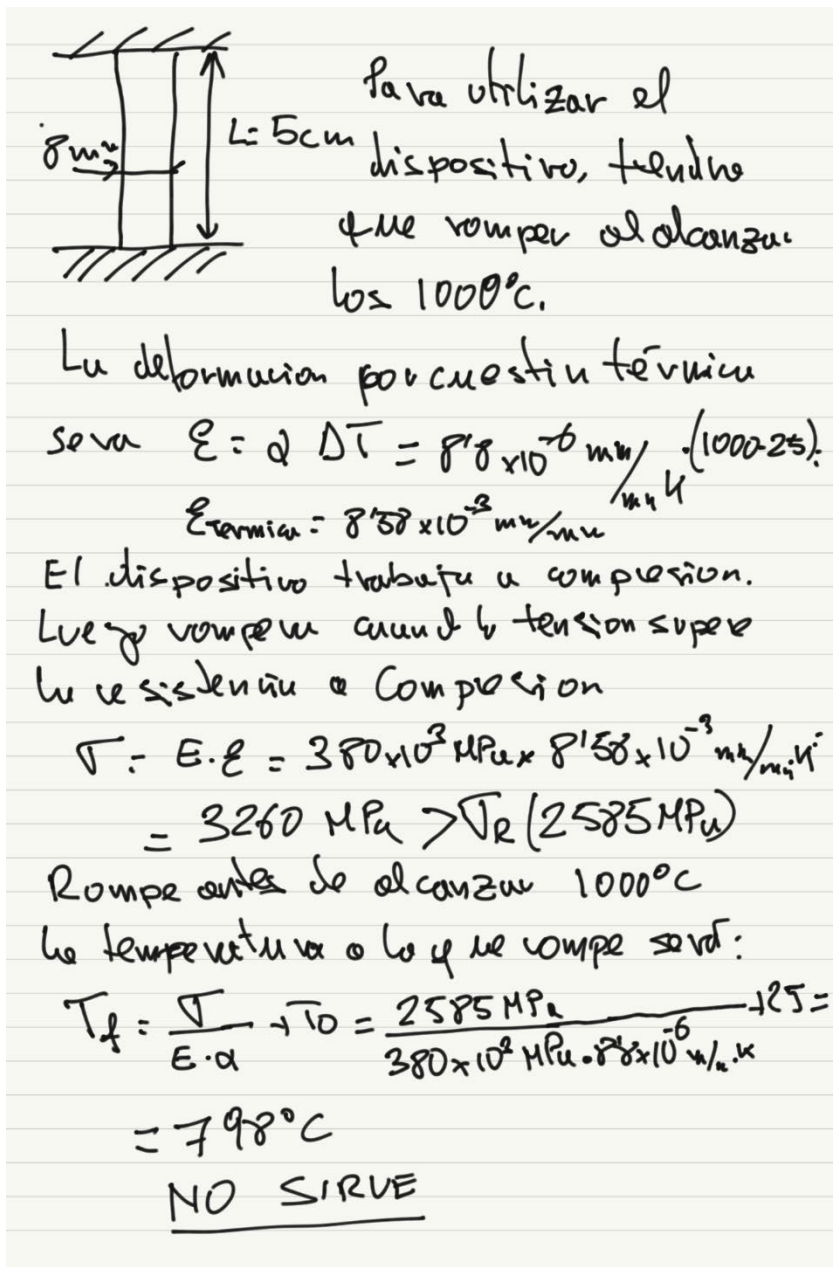 8 mm
L = 5cm
Para utilizar el
dispositivo, tendra
que romper al alcanzar
los 1000°C.
La deformacion por cuestin térmica
sera ε = α ΔT = 8'8 x10⁻⁶ mm/mm K · (1000-25) =
εtermica = 8'58 x10⁻³ mm/mm
El dispositivo trabaja a compresion.
Luego rompera cuand la tension supere
la resistencia a Compresion
σ = E·ε = 380x10³ MPa x 8'58x10⁻³ mm/mm·K =
= 3260 MPa > σR (2585 MPa)
Rompe antes de alcanzar 1000°C
La temperatura a la que rompe será:
Tf = σ / E·α + To = 2585 MPa / 380x10³ MPa · 8'8x10⁻⁶ m/m·K + 25 =
= 798°C
NO SIRVE